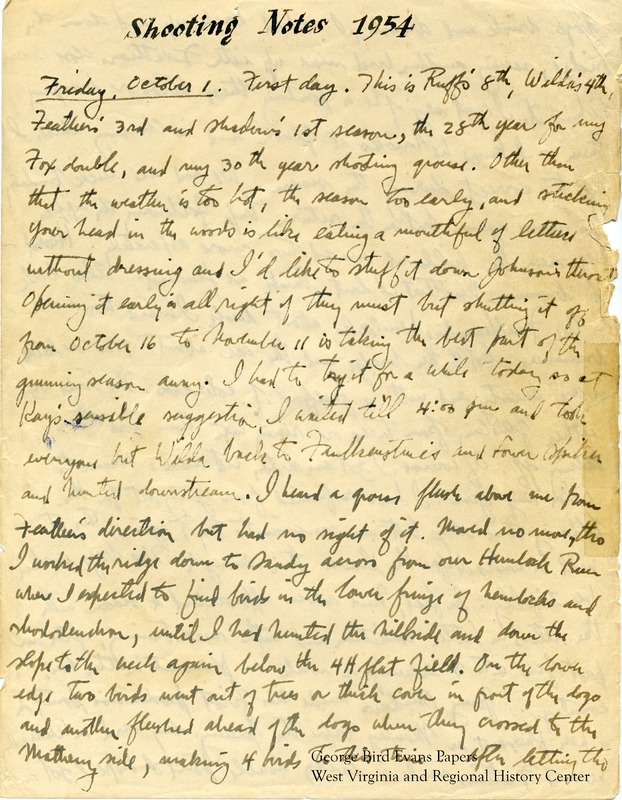 Shooting Notes 1954
Friday, October 1. First day. This is Ruff's 8th, Wilda's 4th,
Feather's 3rd and Shadow's 1st season, the 28th year for my
Fox double, and my 30th year shooting grouse. Other than
that the weather is too hot, the season too early, and sticking
your head in the woods is like eating a mouthful of lettuce
without dressing and I'd like to stuff it down Johnson's throat
Opening it early is all right if they must but shutting it off
from October 16 to November 11 is taking the best part of the
gunning season away. I had to try it for a while today so at
Kay's sensible suggestion, I waited till 4:00 pm and took
everyone but Wilda back to and
and hunted downstream. I heard a grouse flush above me from
Feather's direction but had no sight of it. Moved no more, tho
I worked the ridge down to Sandy across from our Hemlock Run
where I expected to find birds in the lower fringe of hemlocks and
rhododendron, until I had hunted the hillside and down the
slope to the again below the 4H flat field. On the lower
edge two birds went out of trees or thick cover in front of the dogs
and another flushed ahead of the dogs when they crossed to the
Matheny side, making 4 birds After letting the
George Bird Evans Papers
West Virginia and Regional History Center